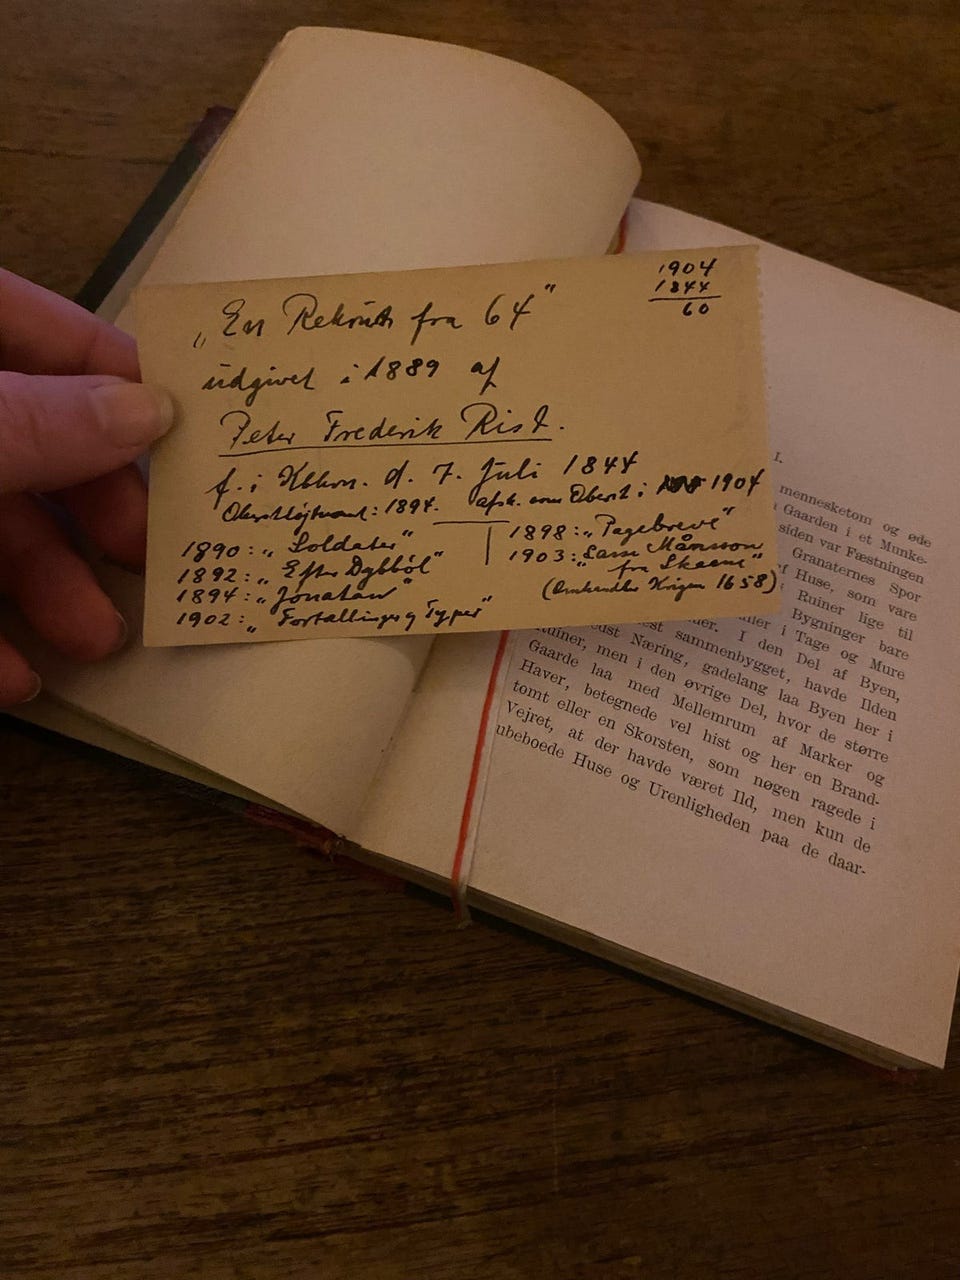 1904
1844
60
„En Rekrut fra 64”
udgivet i 1889 af
Peter Frederik Rist.
f. i Kbhvn. d. 7. Juli 1844
Oberstløjtnant: 1894. afsk. som Oberst i 1904
1890: „Soldater”
1892: „Efter Dybbøl”
1894: „Jonatan”
1902: „Fortællinger og Typer”
1898: „Pagebreve”
1903: „Lasse Månsson
fra Skaane”
(Omhandler Krigen 1658)
I.
mennesketom og øde
Gaarden i et Munke-
siden var Fæstningen
Granaternes Spor
af Huse, som vare
Ruiner lige til
Bygninger bare
i Tage og Mure
I den Del af Byen,
sammenbygget, havde Ilden
Næring, gadelang laa Byen her i
Ruiner, men i den øvrige Del, hvor de større
Gaarde laa med Mellemrum af Marker og
Haver, betegnede vel hist og her en Brand-
tomt eller en Skorsten, som nøgen ragede i
Vejret, at der havde været Ild, men kun de
ubeboede Huse og Urenligheden paa de daar-